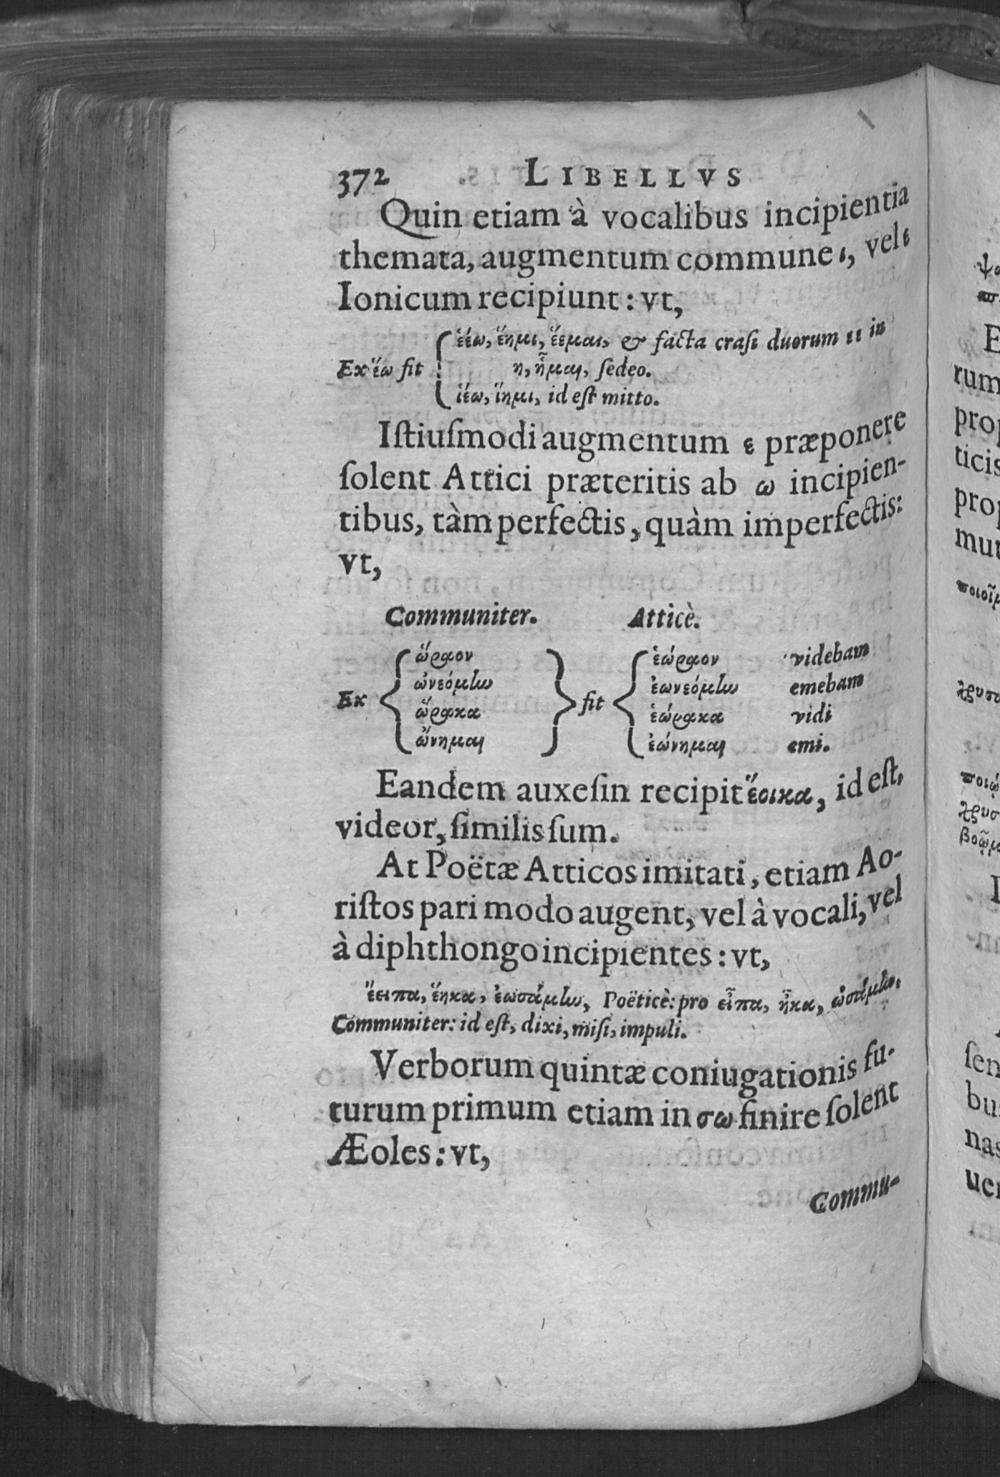 372 LIBELLVS
Quin etiam à vocalibus incipientia
themata, augmentum commune ι, vel ε
Ionicum recipiunt: vt,
ἑέω, ἕημι, ἕεμαι, & facta crasi duorum εε in
Ex ἕω fit η, ἧμαι, sedeo.
ἱέω, ἵημι, id est mitto.
Istiusmodi augmentum ε præponere
solent Attici præteritis ab ω incipien-
tibus, tàm perfectis, quàm imperfectis:
vt,
Communiter. Atticè.
ὥραον ἑώραον videbam
ὠνεόμην ἐωνεόμην emebam
Ex fit
ὥρακα ἑώρακα vidi
ὤνημαι ἐώνημαι emi.
Eandem auxesin recipit ἔοικα, id est,
videor, similis sum.
At Poëtæ Atticos imitati, etiam Ao-
ristos pari modo augent, vel à vocali, vel
à diphthongo incipientes: vt,
ἔειπα, ἕηκα, ἐωσάμην, Poëticè: pro εἶπα, ἧκα, ὠσάμην.
Communiter: id est, dixi, misi, impuli.
Verborum quintæ coniugationis fu-
turum primum etiam in σω finire solent
Æoles: vt,
Commu-